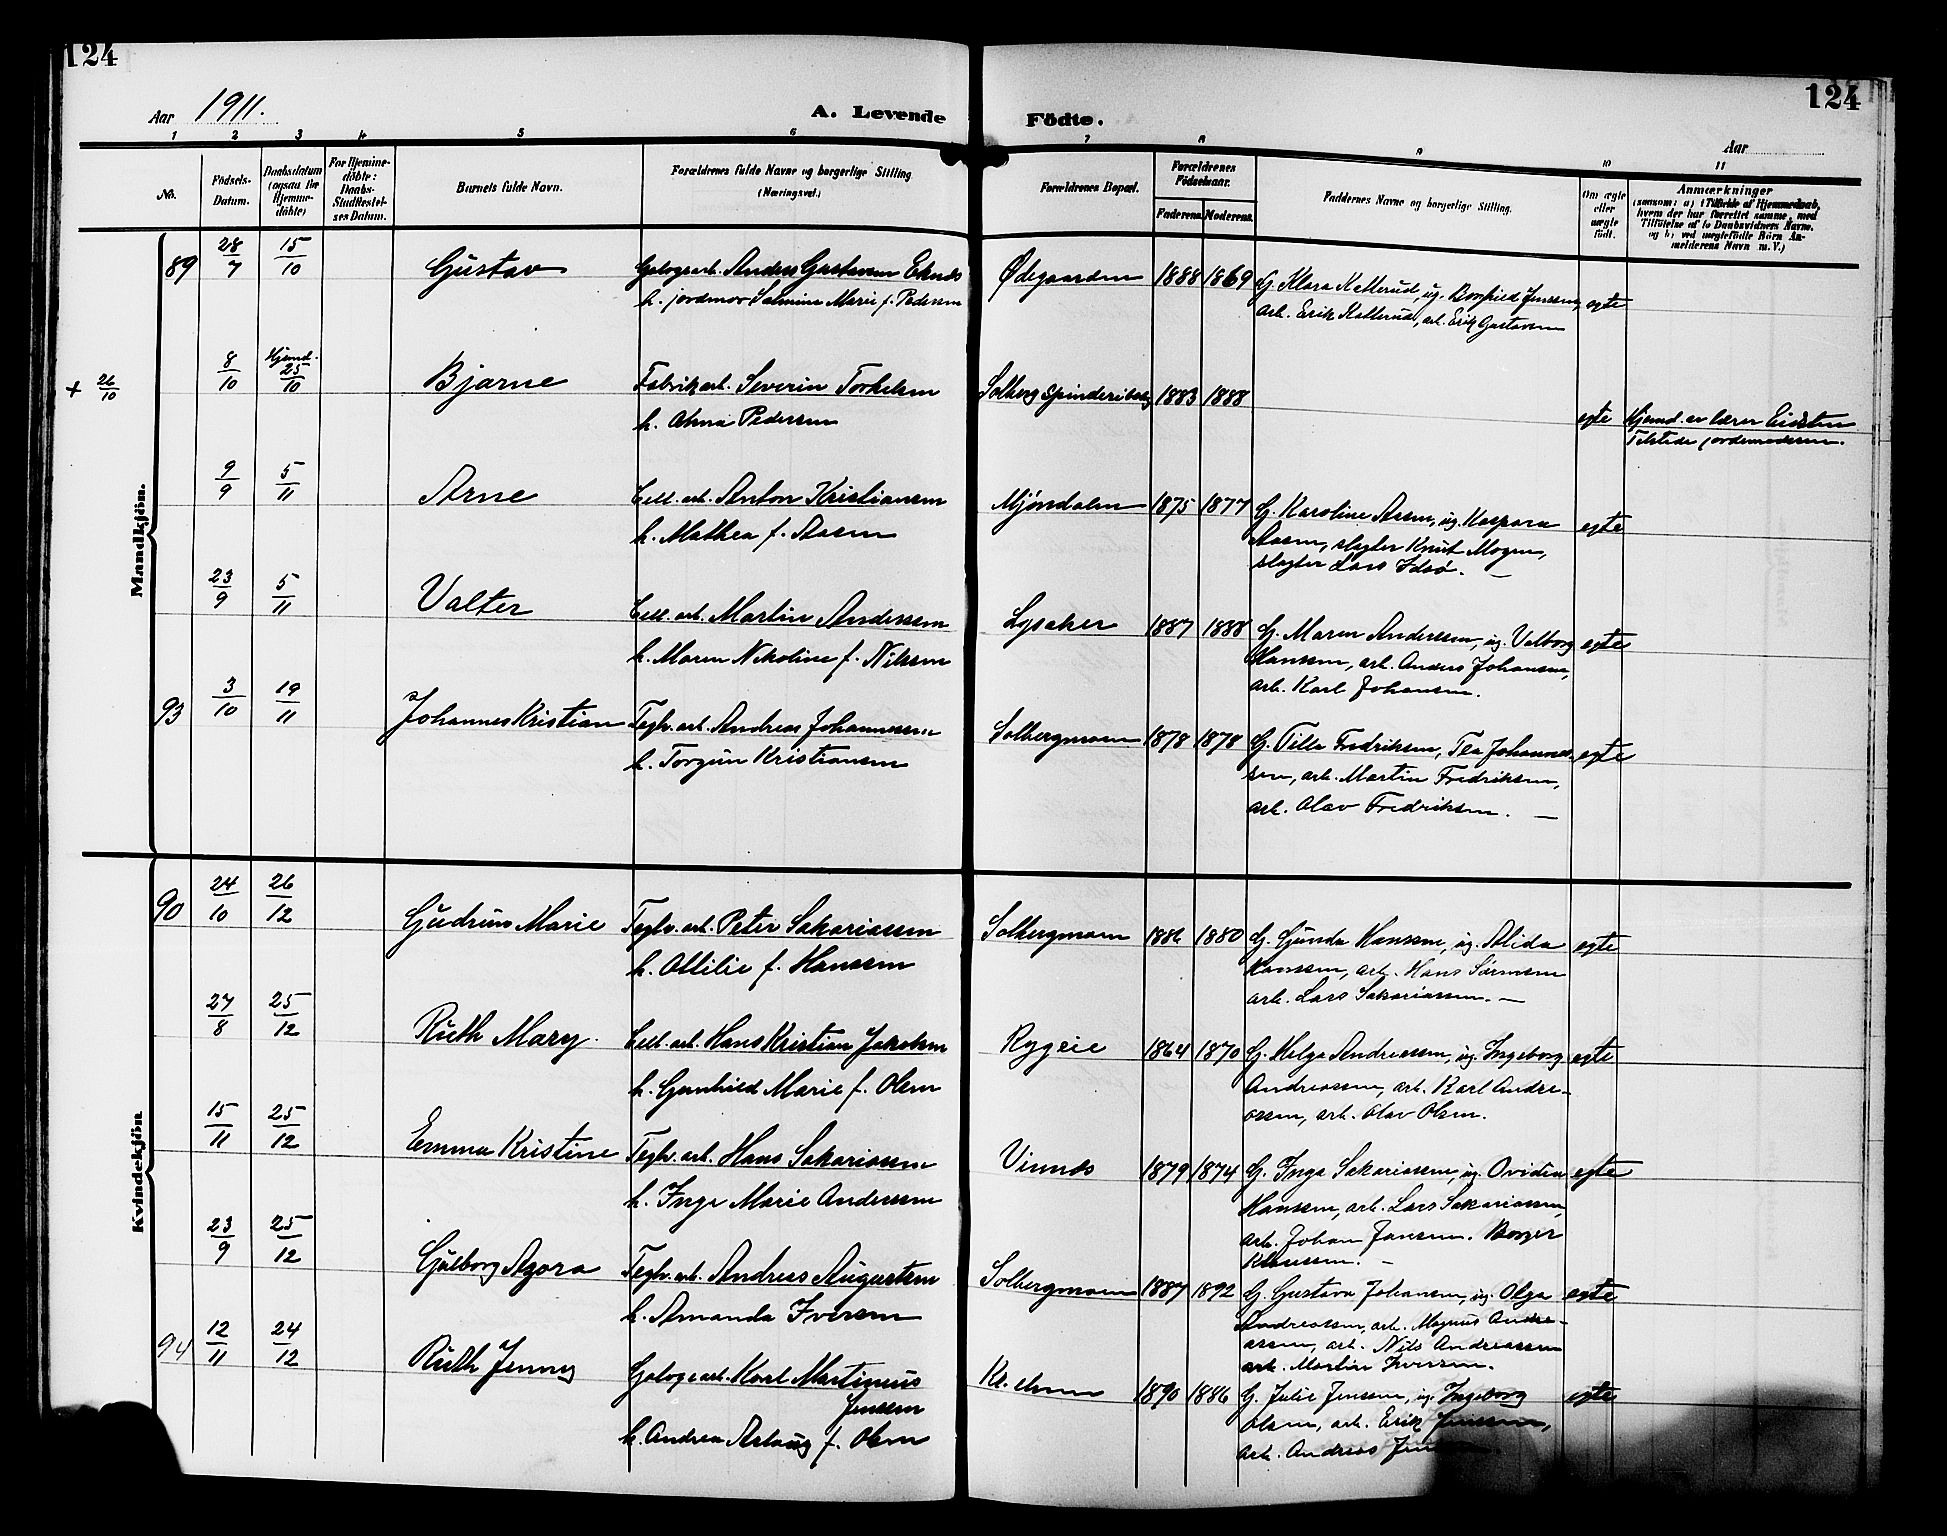 124
124
Aar 1911.
A. Levende Födte.
Aar
1 2 3 4 5 6 7 8 9 10 11
No.
Födsels-Datum.
Daabsdatum (ogsaa for Hjemme-döbte)
For Hjemme-döbte: Daabs-Stadfæstel-ses Datum.
Barnets fulde Navn.
Forældrenes fulde Navne og borgerlige Stilling (Næringsvei.)
Forældrenes Bopæl.
Forældrenes Födselsaar.
Faderens. Moderens.
Faddernes Navne og borgerlige Stilling.
Om ægte eller uægte födt.
Anmærkninger
(saasom: a) i Tilfælde af Hjemmedaab,
hvem der har forrettet samme, med
Tilföielse af to Daabsvidners Navne,
og b) ved uægtefödte Börn An-
melderens Navn m. V.)
Mandkjön.
89 28/7 15/10 Gustav
Anders Gustavsen Eknes
h. jordmor Salmine Marie f. Pedersen
Ødegaarden 1888 1869
G. Klara Kolterud, ug. Borghild Jenssen,
arb. Erik Kolterud, arb. Erik Gustavsen
egte
+ 26/10
8/10 Hjemd. 25/10 Bjarne
Fabrikarb. Severin Torkelsen
h. Anna Pedersen
Solberg Spinderibolig 1883 1888
egte
Hjemd. av lærer Eidsten
Tilstede jordemoderen.
9/9 5/11 Arne
Cell. arb. Anton Kristiansen
h. Mathea f. Aasen
Mjøndalen 1875 1877
G. Karoline Aasen, ug. Kaspara
Aasen, slagter Knut Mogen,
slagter Lars Idsø. —
egte
23/9 5/11 Valter
Cell. arb. Martin Anderssen
h. Maren Nikoline f. Nilssen
Lysaker 1887 1888
G. Maren Anderssen, ug. Valborg
Hanssen, arb. Anders Johansen,
arb. Karl Johansen.
egte
93 3/10 19/11 Johannes Kristian
Teglv. arb. Andreas Johannessen
h. Torgun Kristiansen
Solbergmoen 1878 1878
G. Tilla Fredriksen, Tea Johannes-
sen, arb. Martin Fredriksen,
arb. Olav Fredriksen. —
egte
Kvindekjön
90 24/10 26/12 Gudrun Marie
Teglv. arb. Peter Sakariassen
h. Ottilie f. Hanssen
Solbergmoen 1886 1880
G. Gunda Hanssen, ug. Alida
Hanssen, arb. Hans Sørensen
arb. Lars Sakariassen. —
egte
27/8 25/12 Ruth Mary.
Cell. arb. Hans Kristian Jakobsen
h. Gunhild Marie f. Olsen
Rygeie 1864 1870
G. Helga Andreassen, ug. Ingeborg
Andreassen, arb. Karl Andre-
assen, arb. Olav Olsen.
egte
15/11 25/12 Emma Kristine
Teglv. arb. Hans Sakariassen
h. Inge Marie Anderssen
Vinnes 1879 1874
G. Inga Sakariassen, ug. Ovidia
Hanssen, arb. Lars Sakariassen,
arb. Johan Jansen. Borger
Klaussen. —
egte
23/9 25/12 Gulborg Agora
Teglv. arb. Andreas Augustsen
h. Amanda Iversen
Solbergmoen 1887 1892
G. Gustava Johansen, ug. Olga
Andreassen, arb. Magnus Andre-
assen, arb. Nils Andreassen
arb. Martin Iversen.
egte
94 12/11 24/12 Ruth Jenny
Karl Martinius
Jenssen
h. Andrea Aslaug f. Olsen
1890 1886
G. Julie Jenssen, ug. Ingeborg
Olsen, arb. Erik Jenssen,
arb. Andreas
egte